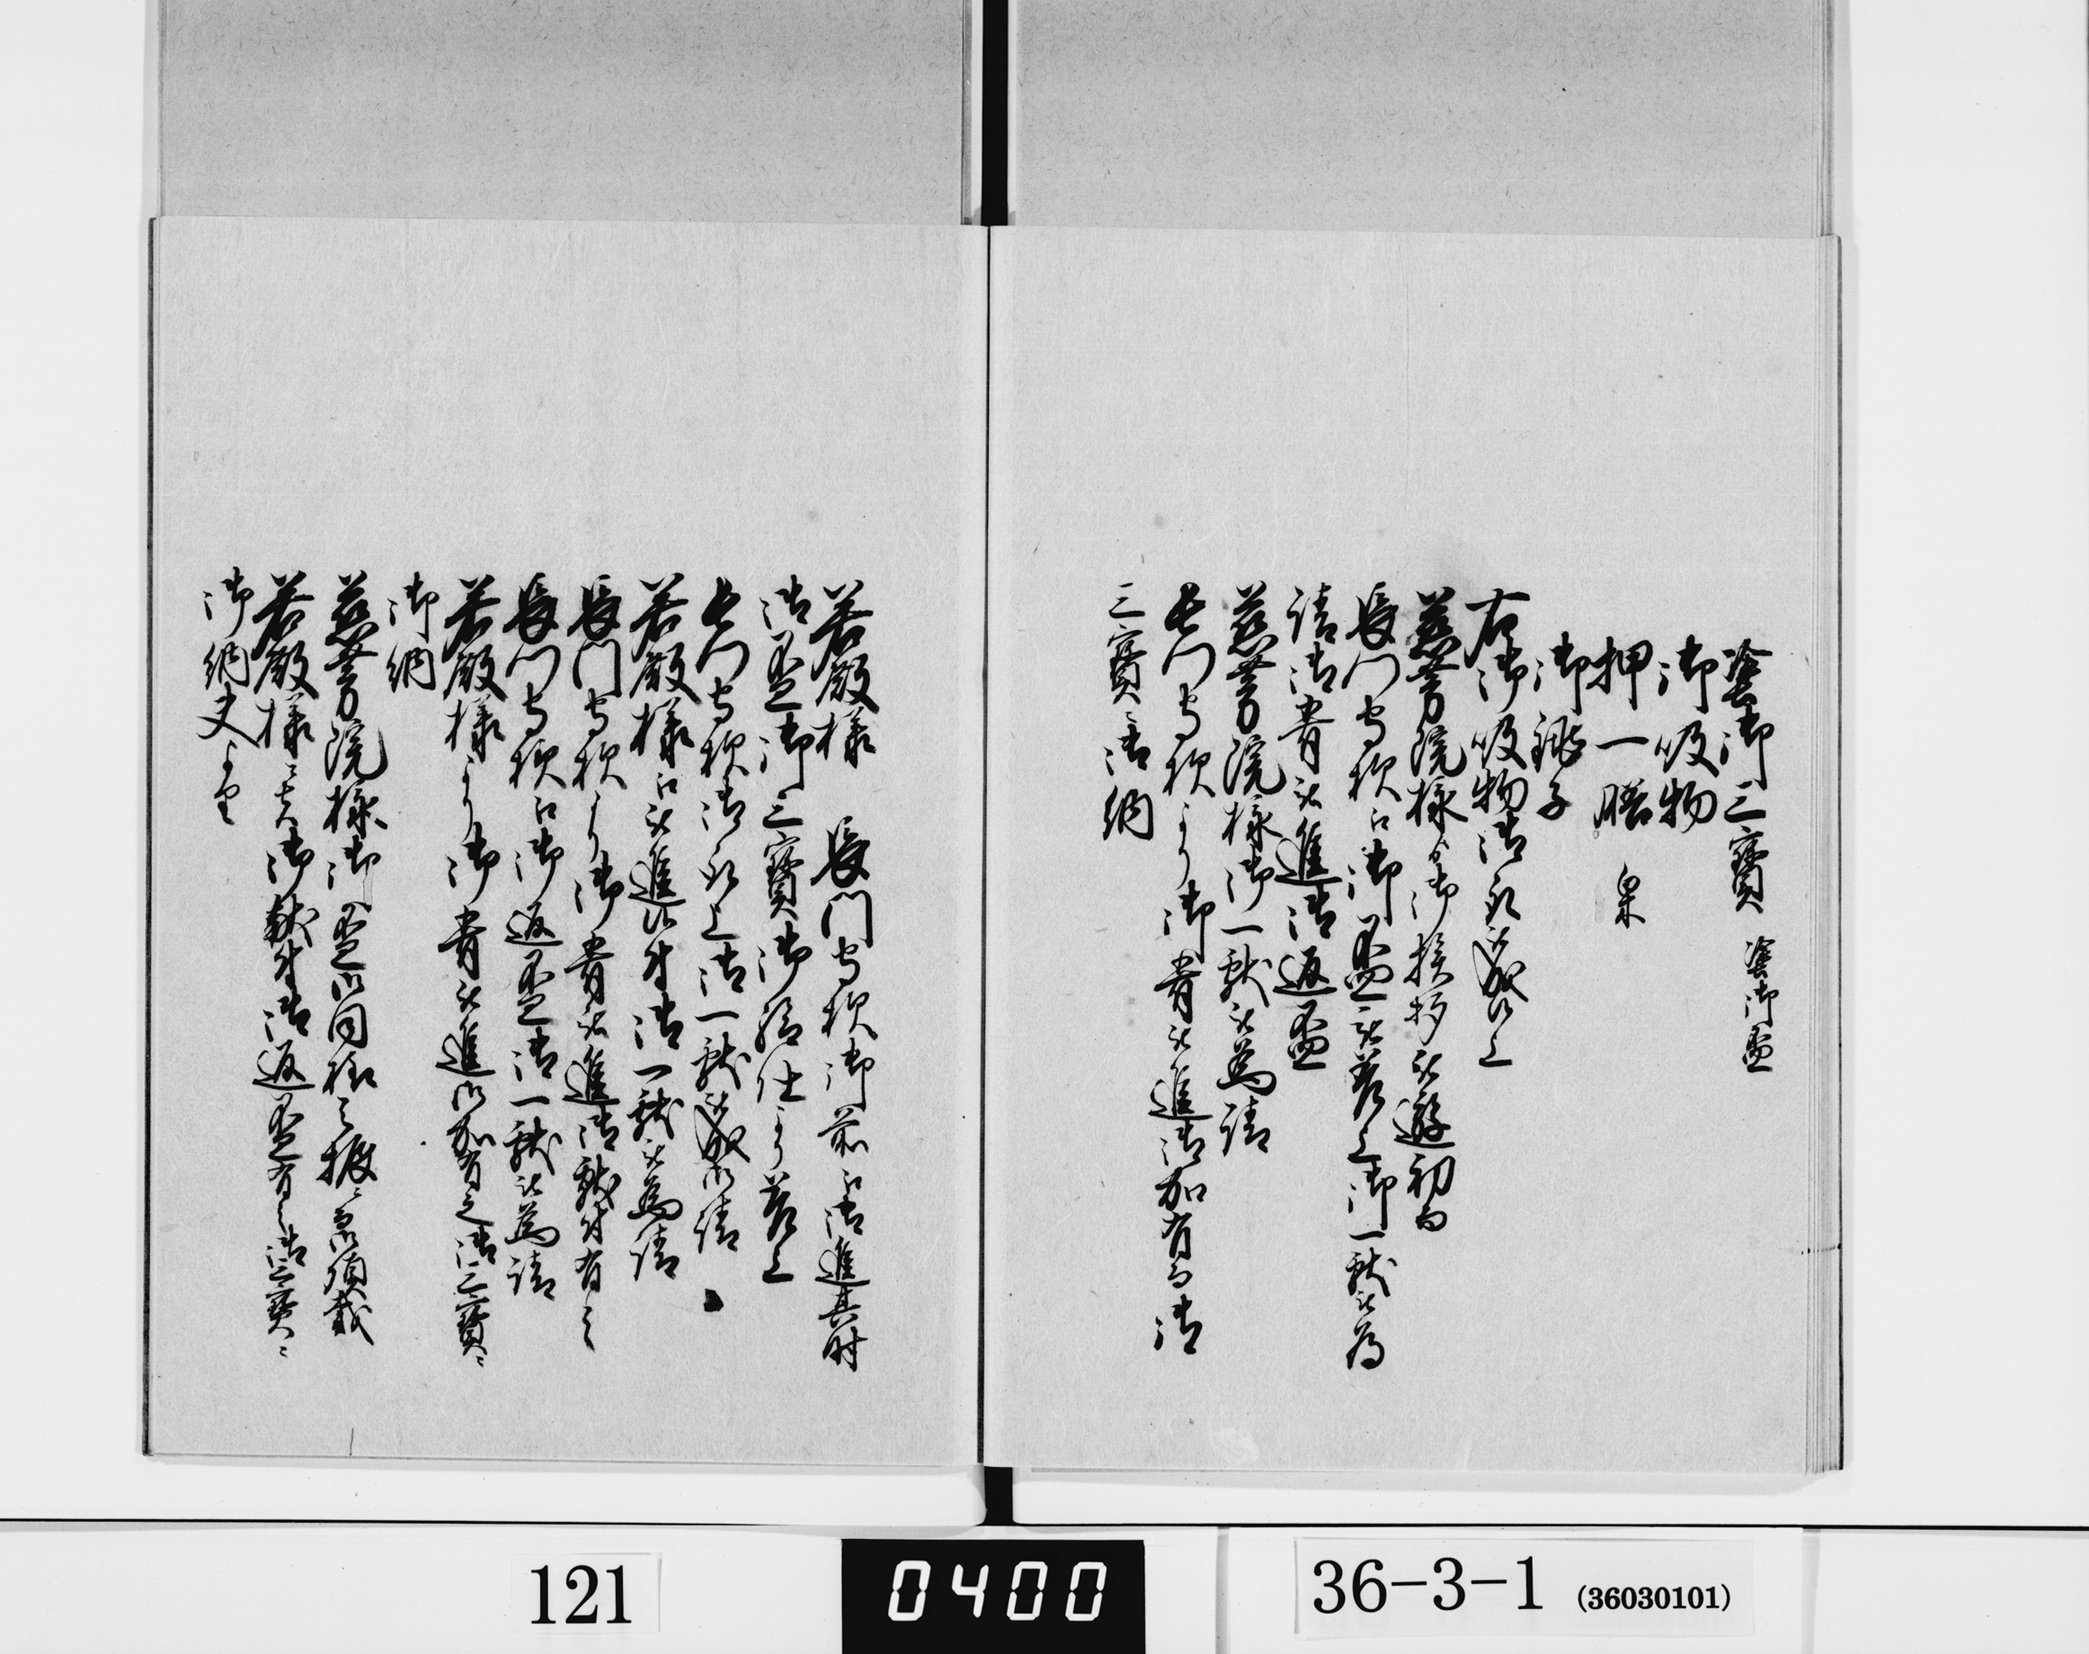 塗御三寶 塗御盃
御吸物
押一膳 皿
御銚子
右御吸物御取被成候上
慈芳院様より御挨拶被遊初而
長門守様江御盃被差上御一献被為
請御肴被進御返盃
慈芳院様御一献被為請
長門守様より御肴被進御加有而御
三寶ニ御納
若殿様 長門守様御前江御進其時
御盃御三寶御給仕より差上
長門守様御取上御一献被成御請
若殿様江被進候付御一献被為請
長門守様より御肴被進御献付有之
長門守様江御返盃御一献被為請
若殿様より御肴被進御加有之御三寶ニ
御納
慈芳院様御盃御同様之振ニ而御頂戴
若殿様ニ茂御献付御返盃有之御三寶ニ
御納夫より
121
0400
36-3-1 (36030101)